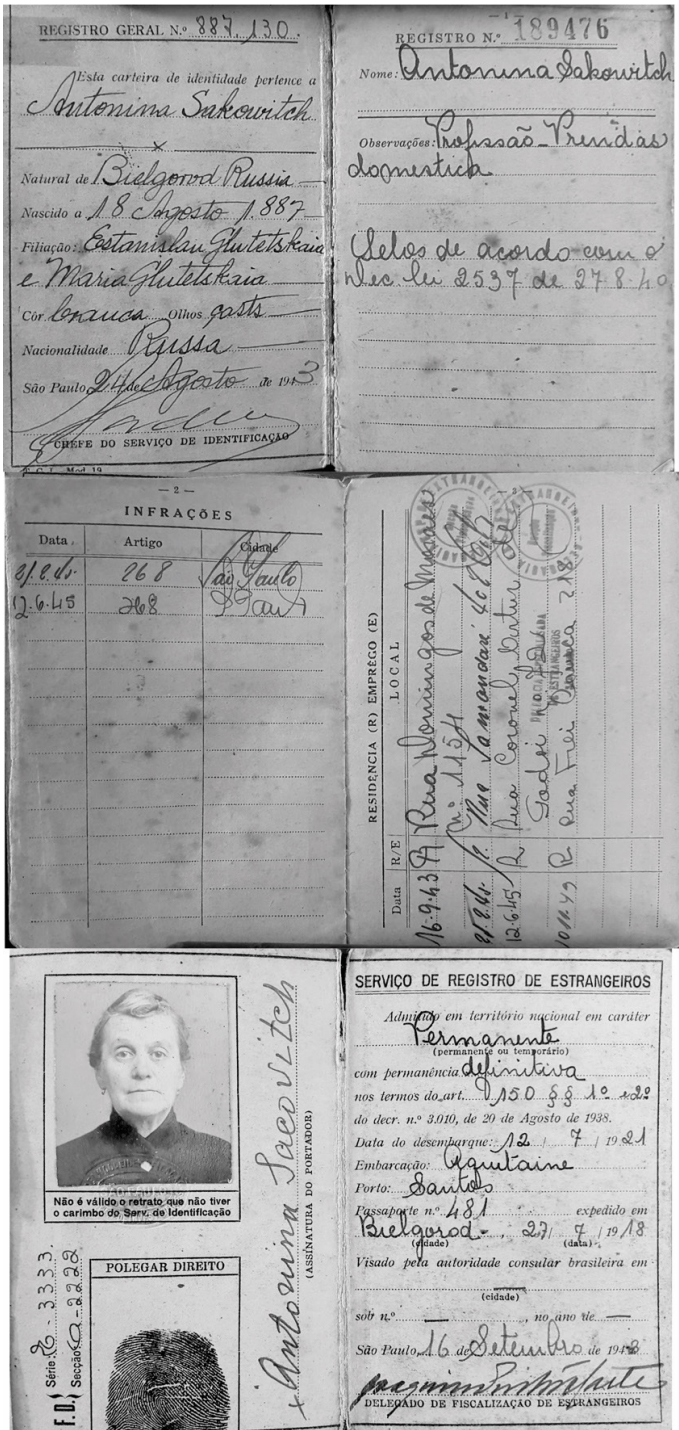 REGISTRO GERAL N.º 887.130.
Esta carteira de identidade pertence a
Antonina Sakowitch
Natural de Bielgorod Russia
Nascido a 18 Agosto 1.887
Filiação: Estanislau Glutetskaia
e Maria Glutetskaia
Côr branca Olhos casts
Nacionalidade Russa
São Paulo, 24 de Agosto de 1943
CHEFE DO SERVIÇO DE IDENTIFICAÇÃO
REGISTRO N.º 189476
Nome: Antonina Sakowitch
Observações: Profissão - Prendas
domestica
Selos de acordo com o
Dec. lei 2537 de 27.8.40
— 2 —
INFRAÇÕES
Data Artigo Cidade
268 São Paulo
12.6.45 268 S Paulo
RESIDÊNCIA (R) EMPRÊGO (E)
Data R/E LOCAL
16.9.43 R Rua Domingos de Moraes
nº 1154
Rua Tamandaré
12.6.45 R Rua Coronel Artur de
Godoi
10 11 49 R Rua Frei Caneca 218
DELEGACIA ESPECIALIZADA
DE ESTRANGEIROS
Não é válido o retrato que não tiver
o carimbo do Serv. de Identificação
F. D. Série: 3333
Secção: 2222
POLEGAR DIREITO
Antonina Sacovitch
(ASSINATURA DO PORTADOR)
SERVIÇO DE REGISTRO DE ESTRANGEIROS
Admitido em território nacional em caráter
Permanente
(permanente ou temporário)
com permanência definitiva
nos termos do art. 150 §§ 1º e 2º
do decr. n.º 3.010, de 20 de Agosto de 1938.
Data do desembarque: 12 / 7 / 1921
Embarcação: Aquitaine
Porto: Santos
Passaporte n.º 481 expedido em
Bielgorod -, 27/ 7 /1918
(cidade) (data)
Visado pela autoridade consular brasileira em
(cidade)
sob n.º — , no ano de —
São Paulo, 16 de Setembro de 1943
DELEGADO DE FISCALIZAÇÃO DE ESTRANGEIROS